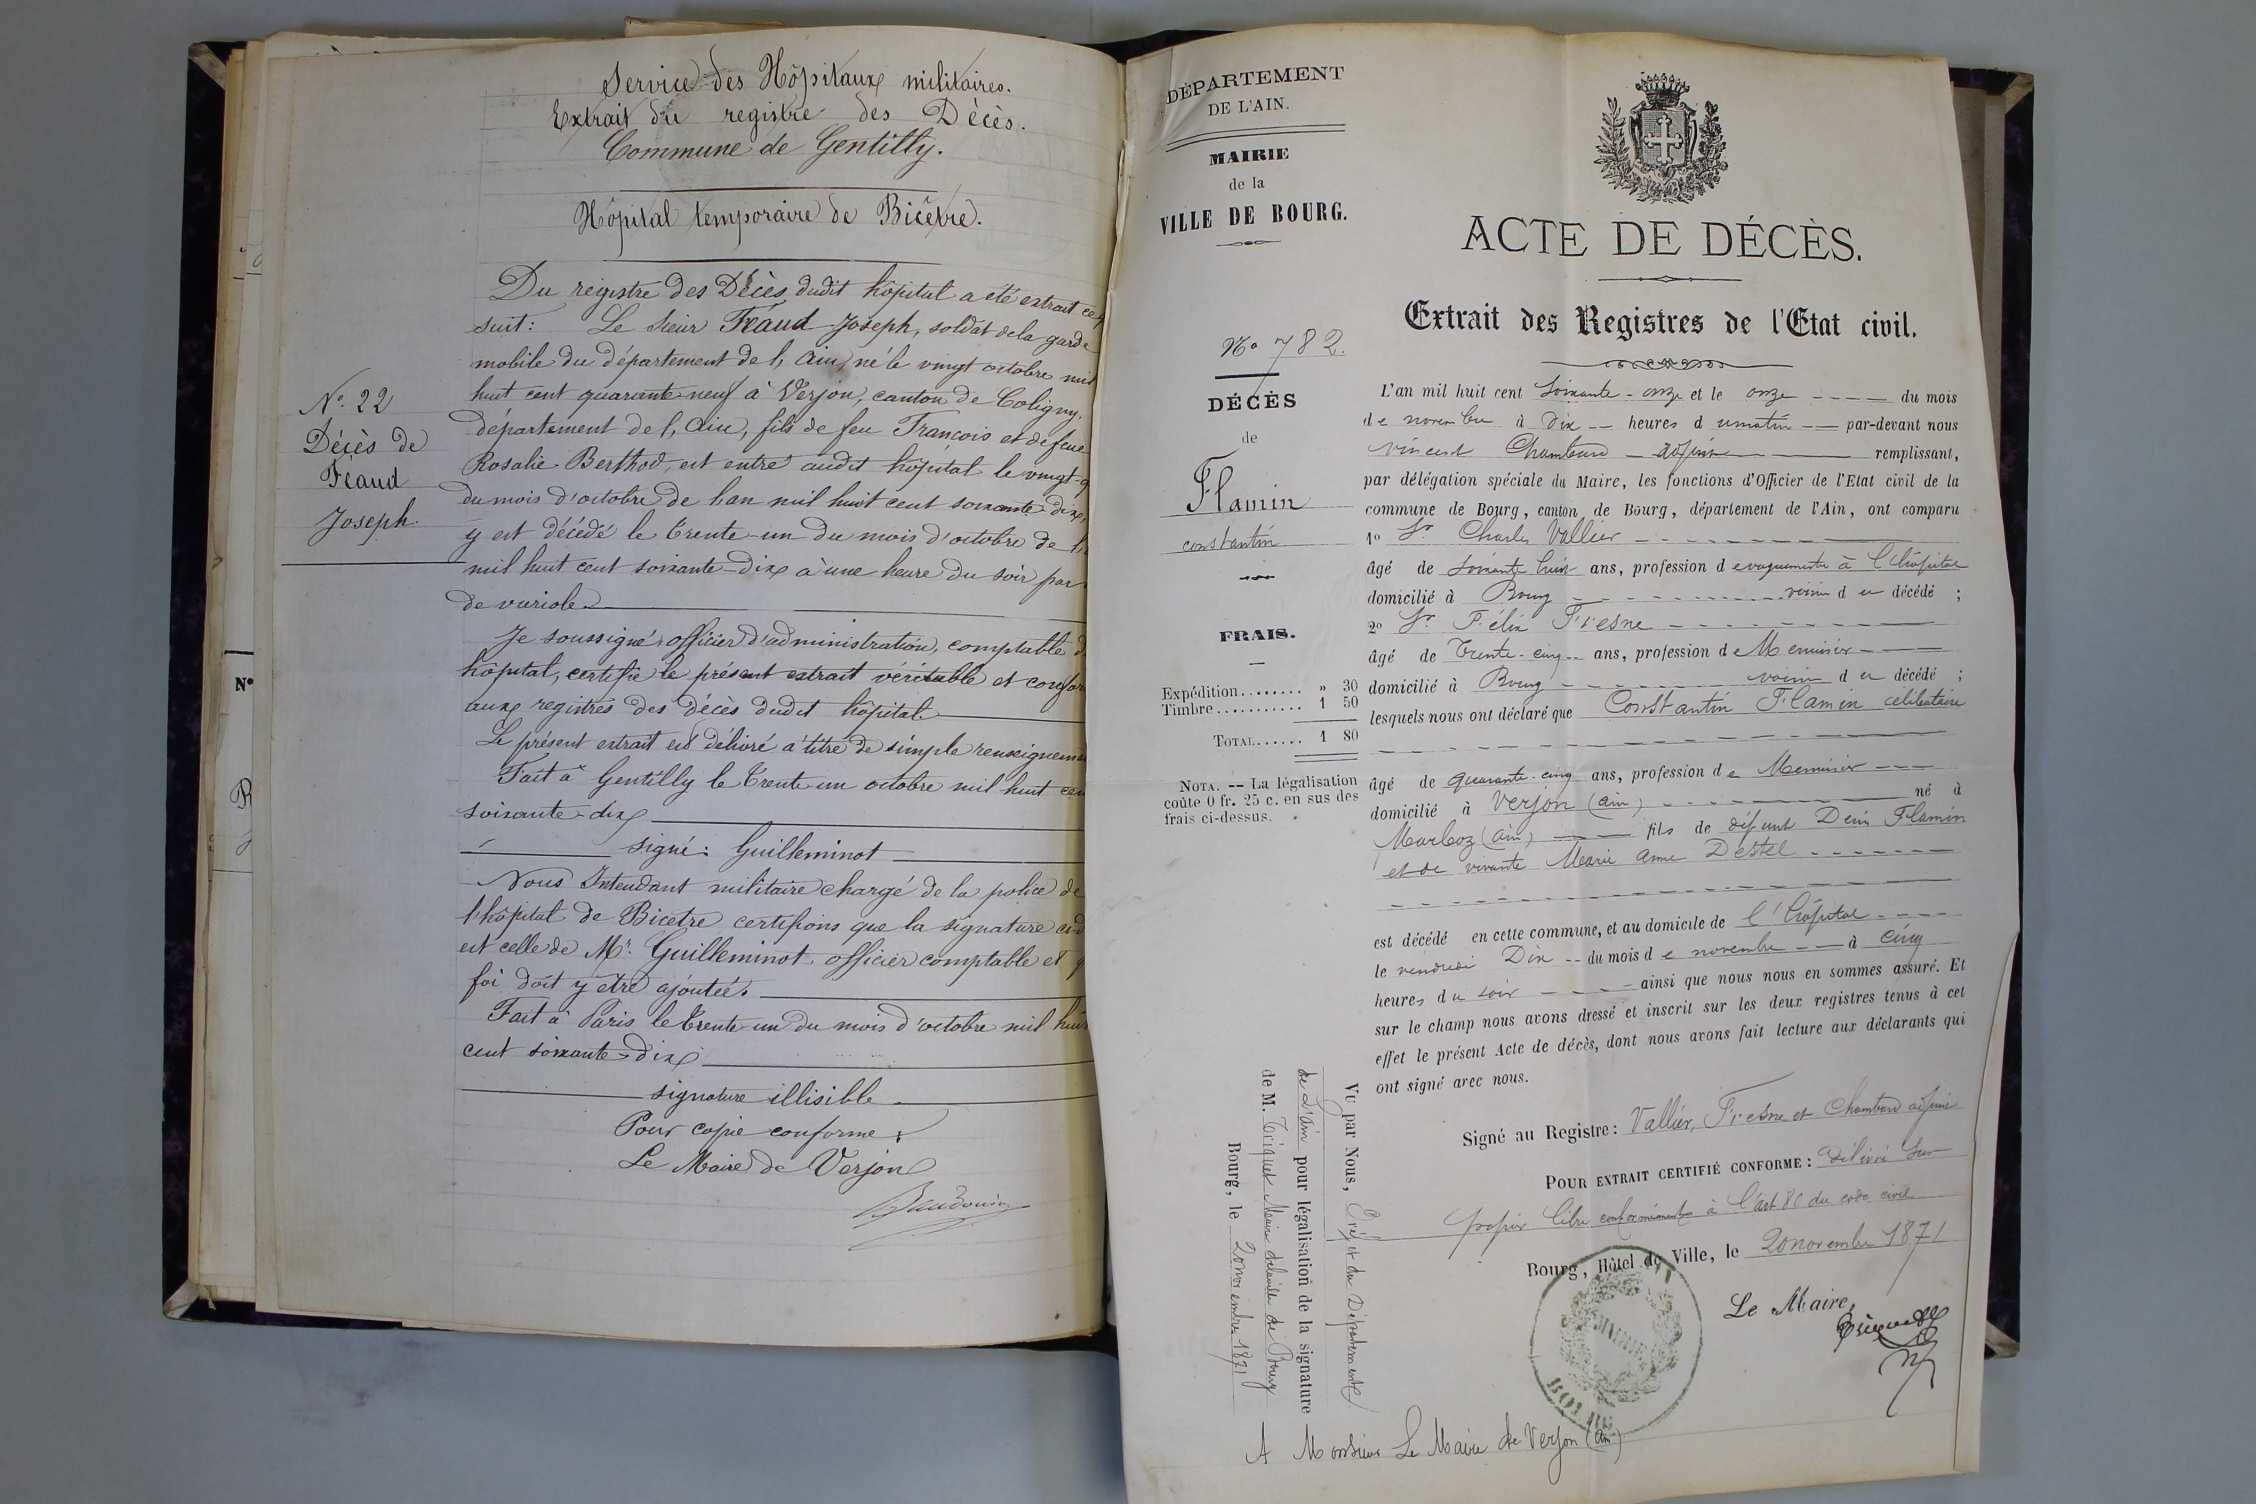 Service des Hôpitaux militaires.
Extrait du registre des Décès.
Commune de Gentilly.
Hôpital temporaire de Bicêtre.
N° 22
Décès de
Féaud
Joseph.
Du registre des Décès dudit hôpital a été extrait ce
suit: Le sieur Féaud Joseph, soldat de la garde
mobile du département de l'Ain, né le vingt octobre mil
huit cent quarante neuf à Verjon, canton de Coligny,
département de l'Ain, fils de feu François et de feue
Rosalie Berthod, est entré audit hôpital le vingt-q
du mois d'octobre de l'an mil huit cent soixante dix,
y est décédé le trente-un du mois d'octobre de l'
mil huit cent soixante-dix à une heure du soir par
de variole
Je soussigné officier d'administration, comptable d
hôpital, certifie le présent extrait véritable et confor
aux registres des décès dudit hôpital
Le présent extrait est délivré à titre de simple renseigneme
Fait à Gentilly le trente un octobre mil huit cen
soixante-dix
signé: Guilleminot
Nous Intendant militaire chargé de la police de
l'hôpital de Bicetre certifions que la signature ci-d
est celle de Mr. Guilleminot officier comptable et q
foi doit y être ajoutée.
Fait à Paris le trente un du mois d'octobre mil huit
cent soixante-dix
signature illisible
Pour copie conforme:
Le Maire de Verjon
Baudouin
N°
DÉPARTEMENT
DE L'AIN.
MAIRIE
de la
VILLE DE BOURG.
N° 782.
DÉCÈS
de
Flamin
constantin
FRAIS.
Expédition........ » 30
Timbre........... 1 50
TOTAL...... 1 80
NOTA. -- La légalisation
coûte 0 fr. 25 c. en sus des
frais ci-dessus.
ACTE DE DÉCÈS.
Extrait des Registres de l'Etat civil.
L'an mil huit cent soixante-onze et le onze du mois
de novembre à dix heures du matin par-devant nous
Vincent Chambard adjoint remplissant,
par délégation spéciale du Maire, les fonctions d'Officier de l'Etat civil de la
commune de Bourg, canton de Bourg, département de l'Ain, ont comparu
1° Sr Charles Vallier
âgé de soixante huit ans, profession de vaguemestre à l'hôpital
domicilié à Bourg voisin du décédé ;
2° Sr Félix Fresne
âgé de trente-cinq ans, profession de Menuisier
domicilié à Bourg voisin du décédé ;
lesquels nous ont déclaré que Constantin Flamin celibataire
âgé de quarante-cinq ans, profession de Menuisier
domicilié à Verjon (ain) né à
Marboz (ain) fils de défunt Denis Flamin
et de vivante Marie Anne Destel
est décédé en cette commune, et au domicile de l'hôpital
le vendredi Dix du mois de novembre à cinq
heures du soir ainsi que nous nous en sommes assuré. Et
sur le champ nous avons dressé et inscrit sur les deux registres tenus à cet
effet le présent Acte de décès, dont nous avons fait lecture aux déclarants qui
ont signé avec nous.
Signé au Registre: Vallier, Fresne et Chambard adjoint
POUR EXTRAIT CERTIFIÉ CONFORME: délivré sur
papier libre conformément à l'art 80 du code civil
Bourg, Hôtel de Ville, le 20 novembre 1871
Le Maire,
MAIRIE
BOURG
Vu par Nous, Préfet du Département
de l'Ain pour légalisation de la signature
de M. Triquet Maire de la ville de Bourg
Bourg, le 20 novembre 1871
A Monsieur Le Maire de Verjon (Ain)